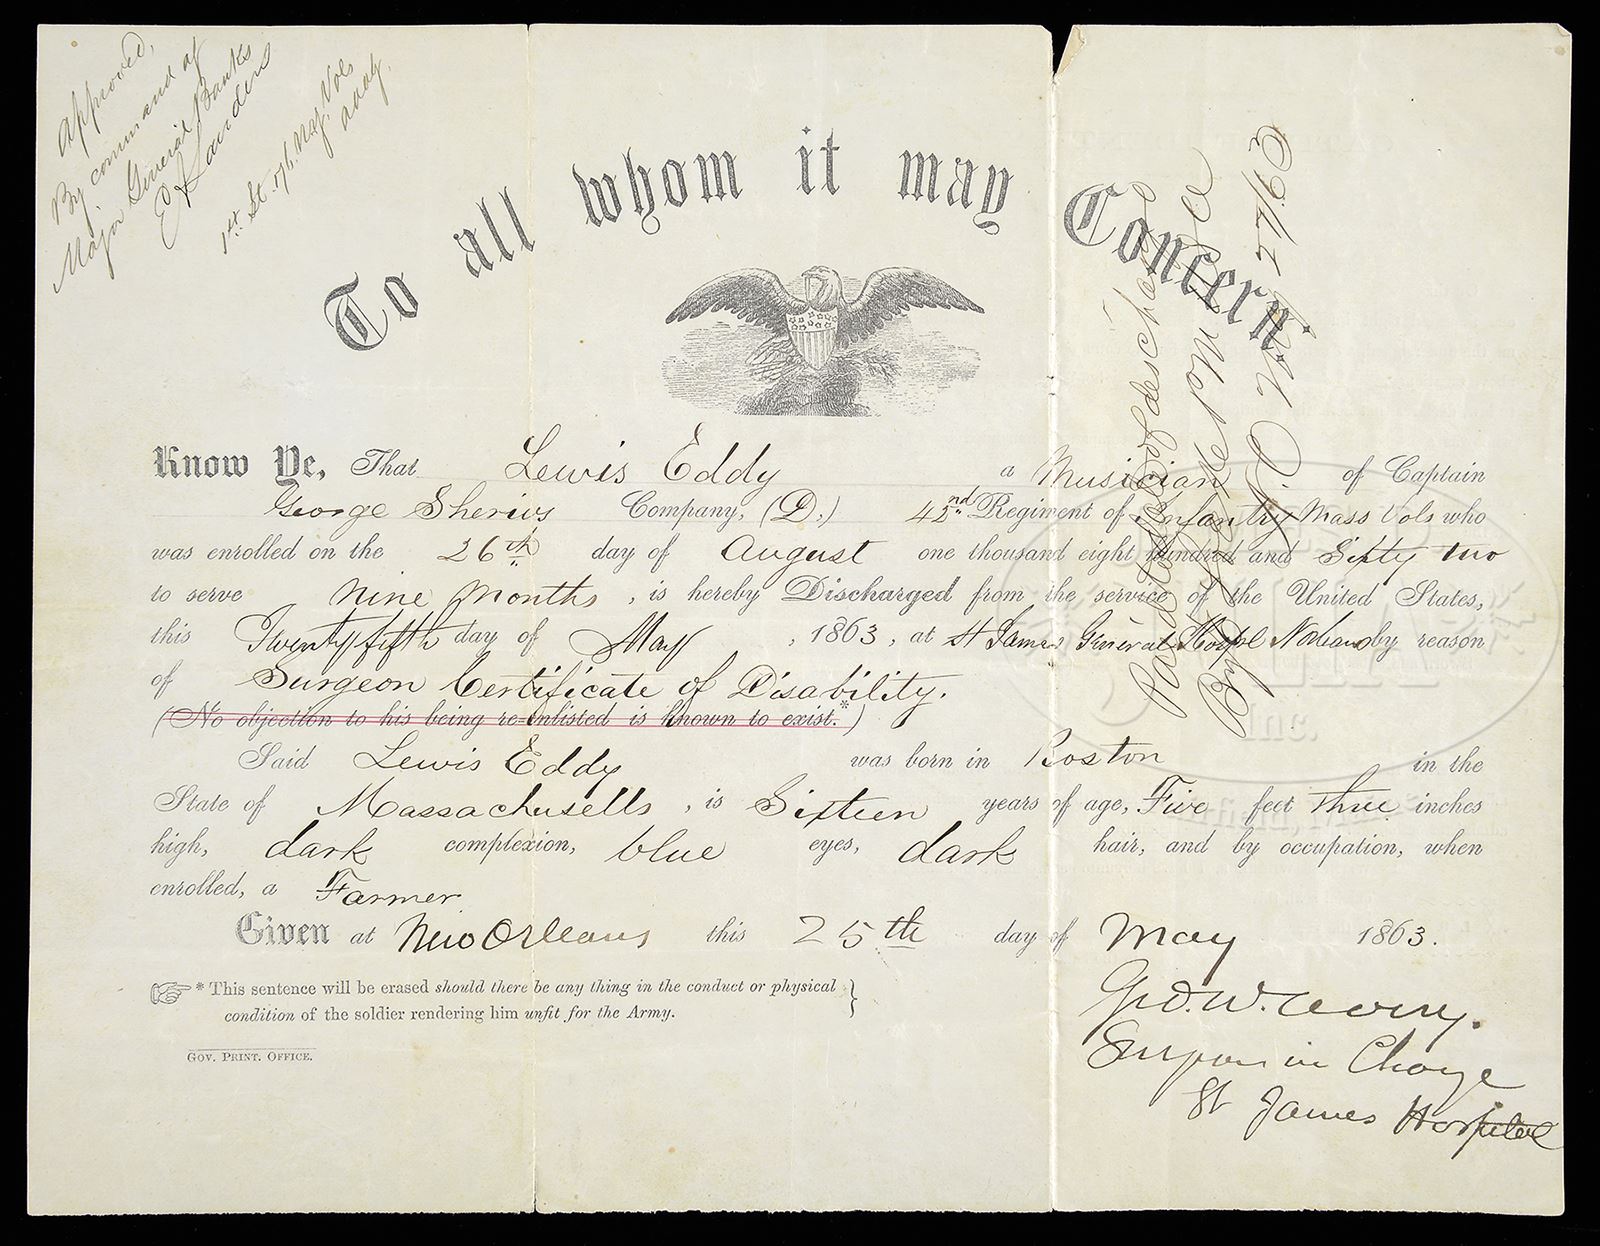 Approved,
By command of
Major General Banks
1st Lt. 176. N.Y. Vols
To all whom it may Concern.
Know Ye, That Lewis Eddy a Musician of Captain
George Company, (D,) 42nd Regiment of Infantry Mass Vols who
was enrolled on the 26th day of August one thousand eight hundred and Sixty two
to serve Nine Months, is hereby Discharged from the service of the United States,
this Twenty fifth day of May, 1863, at St James General Hospl by reason
of Surgeon Certificate of Disability.
(No objection to his being re-enlisted is known to exist.*)
Said Lewis Eddy was born in Boston in the
State of Massachusetts, is Sixteen years of age, Five feet three inches
high, dark complexion, blue eyes, dark hair, and by occupation, when
enrolled, a Farmer
Given at New Orleans this 25th day of May 1863.
* This sentence will be erased should there be any thing in the conduct or physical
condition of the soldier rendering him unfit for the Army.
Gov. Print. Office.
Surgeon in Charge
St James Hospital
Paid
By
May 27/63
Inc.